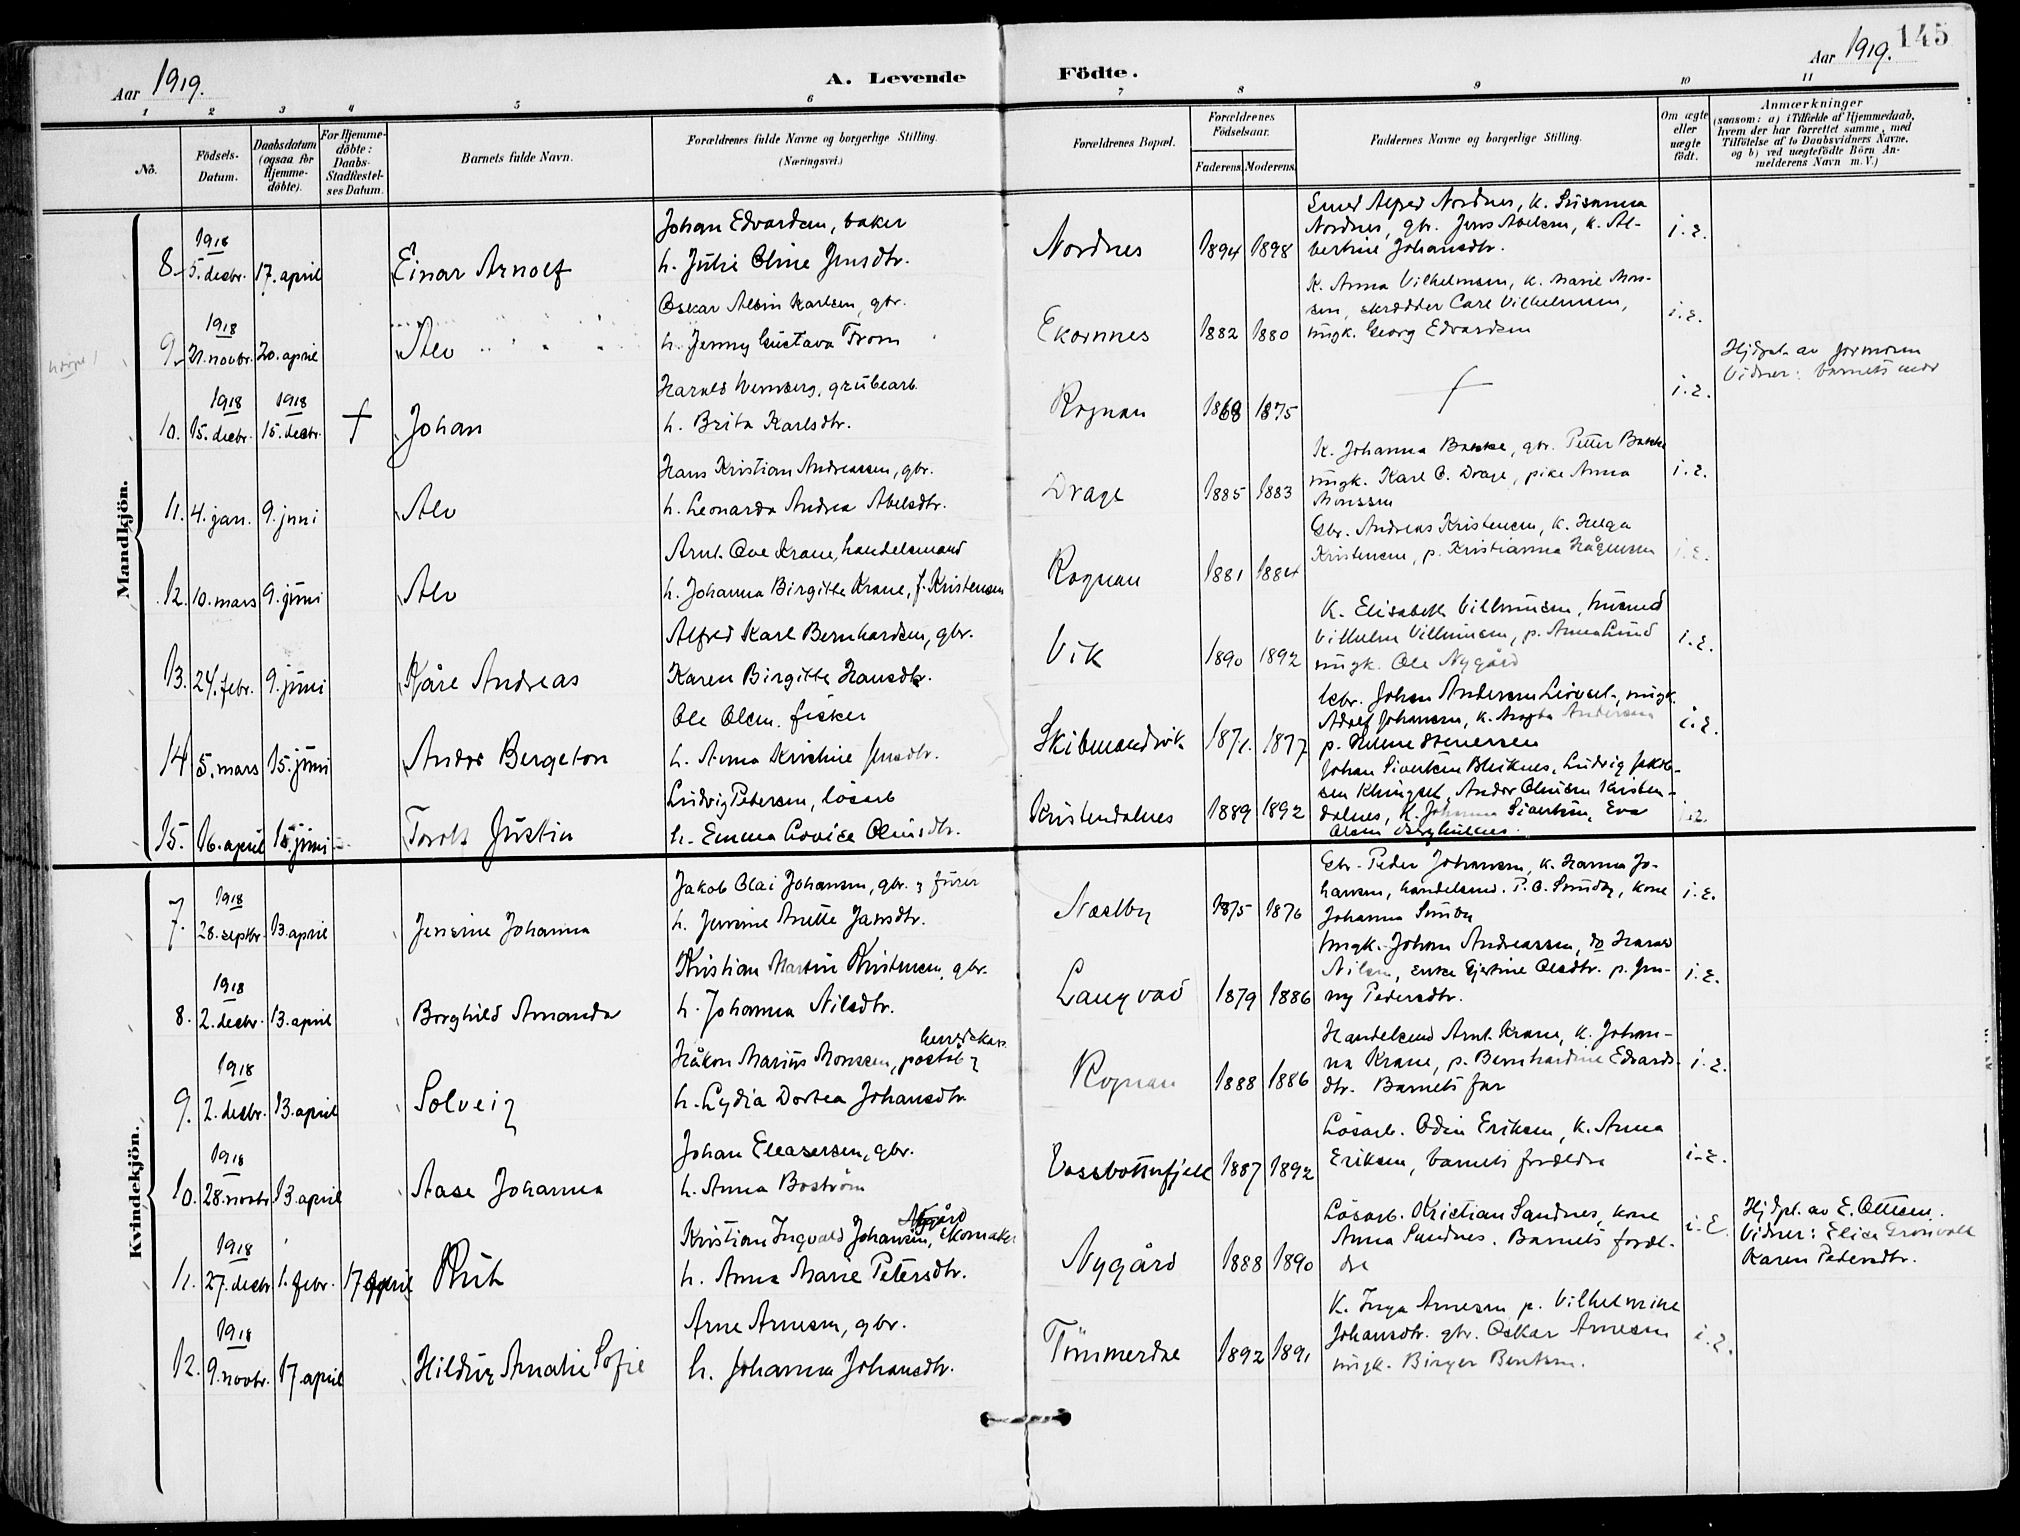 Aar 1919.
A. Levende Födte.
Aar 1919. 145
1 2 3 4 5 6 7 8 9 10 11
No.
Födsels-Datum.
Daabsdatum (ogsaa for Hjemme-döbte).
For Hjemme-döbte: Daabs-Stadfæstel-ses Datum.
Barnets fulde Navn.
Forældrenes fulde Navne og borgerlige Stilling.
(Næringsvei.)
Forældrenes Bopæl.
Forældrenes Födselsaar.
Faderens. Moderens.
Faddernes Navne og borgerlige Stilling.
Om ægte eller uægte födt.
Anmærkninger
(saasom: a) i Tilfælde af Hjemmedaab,
hvem der har forrettet samme, med
Tilföielse af to Daabsvidners Navne,
og b) ved uægtefödte Börn An-
melderens Navn m. V.)
Mandkjön.
8. 1918 5. decbr. 17. april Einar Arnolf
Johan Edvardsen, baker
h. Julie Oline Jensdtr.
Nordnes 1894 1898
Smed Alfred Nordnes, k. Susanna
Nordnes, gbr. Jens Abelsen, k. Al-
bertine Johansdtr.
i. E.
9. 1918 21. novbr. 20. april Alv
Oskar Albin Karlsen, gbr.
h. Jenny Gustava Trom
Ekornnes 1882 1880
K. Anna Vilhelmsen, k. Marie Mon-
sen, skrædder Carl Vilhelmsen,
ungk. Georg Edvardsen
i. E.
10. 1918 15. decbr. 1918 15. decbr. † Johan
Harald Wernberg, grubearb.
h. Brita Karlsdtr.
Rognan 1868 1875
†
i. E.
Hjdpt. av jormoren
Vidner: barnets mor
11. 4. jan. 9. juni Alv
Hans Kristian Andreassen, gbr.
h. Leonarda Andrea Abelsdtr.
Drage 1885 1883
K. Johanna Bakke, gbr. Petter Bakke
ungk. Karl C. Drage, pike Anna
Monssen
i. E.
12. 10. mars 9. juni Alv
Arnt Ove Krane, handelsmand
h. Johanna Birgitte Krane, f. Kristensen
Rognan 1881 1884
Gbr. Andreas Kristensen, k. Helga
Kristensen, p. Kristianna Hågensen
i. E.
13. 24. febr. 9. juni Kåre Andreas
Alfred Karl Bernhardsen, gbr.
Karen Birgitte Hansdtr.
Vik 1890 1892
K. Elisabeth Villumsen, husmd
Vilhelm Villumsen, p. Anna Lund
ungk. Ole Nygård
i. E.
14 5. mars 15. juni Andor Bergeton
Ole Olsen. fisker
h. Anna Kirstine Jensdtr.
Skibmandvik 1871. 1877
Gbr. Johan Andersen, ungk.
Adolf Johansen, k. Magda Andersen
p.
i. E.
15. 16. april 15. juni Torolf Justin
Ludvig Petersen, lösarb
h. Emma Lovise Olausdtr.
Kristendalnes 1889 1892
Johan Sivertsen Bleiknes, Ludvig Jakob-
sen Klungset, Andor Olausen Kristen-
dalnes, K. Johanna Sivertsen, Eva
Olsen
i. E.
Kvindekjön.
7. 1918 28. septbr. 13. april Jensine Johanna
Jakob Olai Johansen, gbr. &
h. Jensine Anette Jansdtr.
Nestby 1875 1876
Gbr. Peder Johansen, k. Hanna Jo-
hansen, handelsmd. P. C. Sundby, kone
Johanna Sundby
i. E.
8. 1918 2. decbr. 13. april Borghild Amanda
Kristian Martin Kristensen, gbr.
h. Johanna Nilsdtr.
Langvad 1879 1886
Ungk. Johan Andreassen, do Harald
Nilsen, enke Gjertine Olsdtr. p. Jen-
ny Pedersdtr.
i. E.
9. 1918 2. decbr. 13. april Solveig
Håkon Marius Monssen, poståb &
h. Lydia Dortea Johansdtr.
Rognan 1888 1886
Handelsmd Arnt Krane, k. Johan-
na Krane, p. Bernhardine Edvards-
dtr. Barnets far
i. E.
10. 1918 28. novbr. 13. april Aase Johanna
Johan Eleasersen, gbr.
h. Anna Boström
Vassbottenfjell 1887 1892
Lösarb. Odin Eriksen, k. Anna
Eriksen, barnets forældre
i. E.
11. 1918 27. decbr 1. febr. 17 april Ruth
Kristian Ingvald Johansen, Nygård skomaker
h. Anna Marie Petersdtr.
Nygård 1888 1890
Lösarb. Kristian Sandnes, kone
Anna Sandnes. Barnets foræl-
dre
i. E.
Hjdpt. av E. Ottesen.
Vidner: Elise Grönvold
Karen Pedersdtr.
12. 1918 9. novbr. 17. april Hildur Amalie Sofie
Arne Arnesen, gbr.
h. Johanna Johansdtr.
Tömmerdal 1892 1891
K. Inga Arnesen p. Vilhelmine
Johansdtr. gbr. Oskar Arnesen
ungk. Birger Bentsen.
i. E.